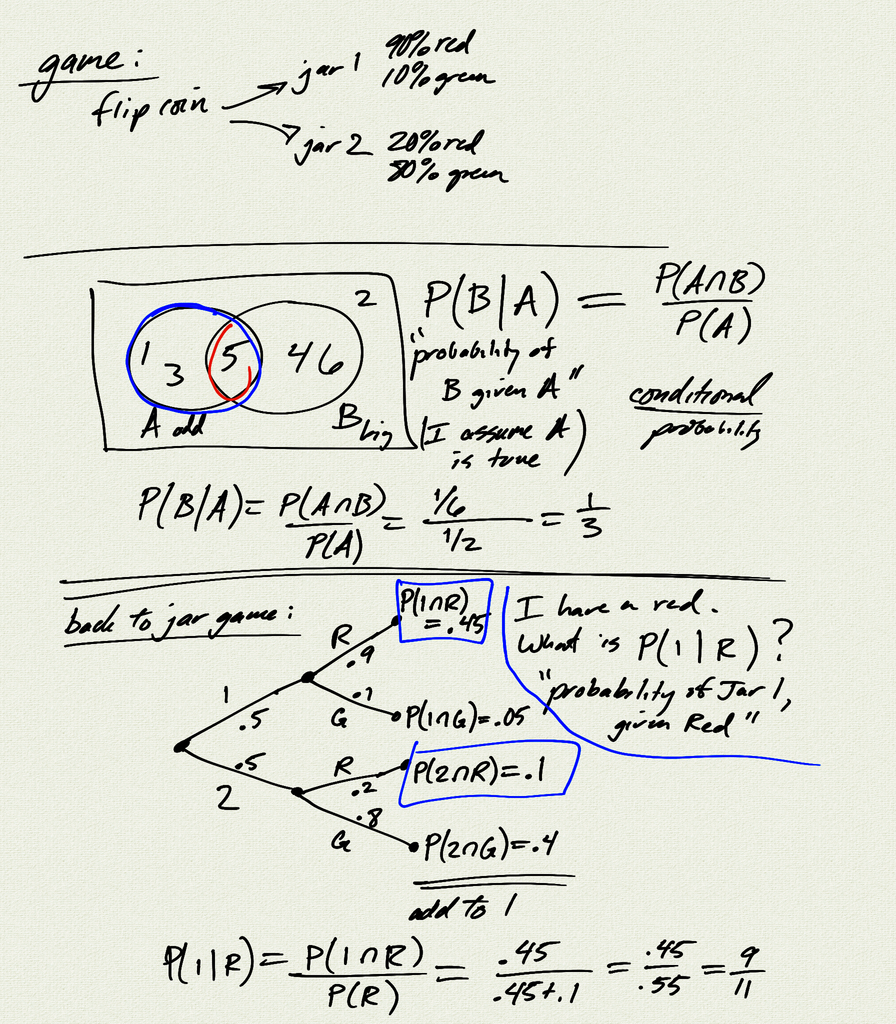 game:
flip coin
jar 1 90% red
10% green
jar 2 20% red
80% green
1 3 5 4 6 2
A odd
B big
P(B|A) = P(A∩B) / P(A)
"probability of
B given A"
(I assume A
is true)
conditional
probability
P(B|A) = P(A∩B) / P(A) = 1/6 / 1/2 = 1/3
back to jar game:
1 .5
R .9
P(1∩R)
= .45
G .1
P(1∩G)=.05
2 .5
R .2
P(2∩R)=.1
G .8
P(2∩G)=.4
add to 1
I have a red.
What is P(1|R)?
"probability of Jar 1,
given Red"
P(1|R) = P(1∩R) / P(R) = .45 / .45+.1 = .45 / .55 = 9/11